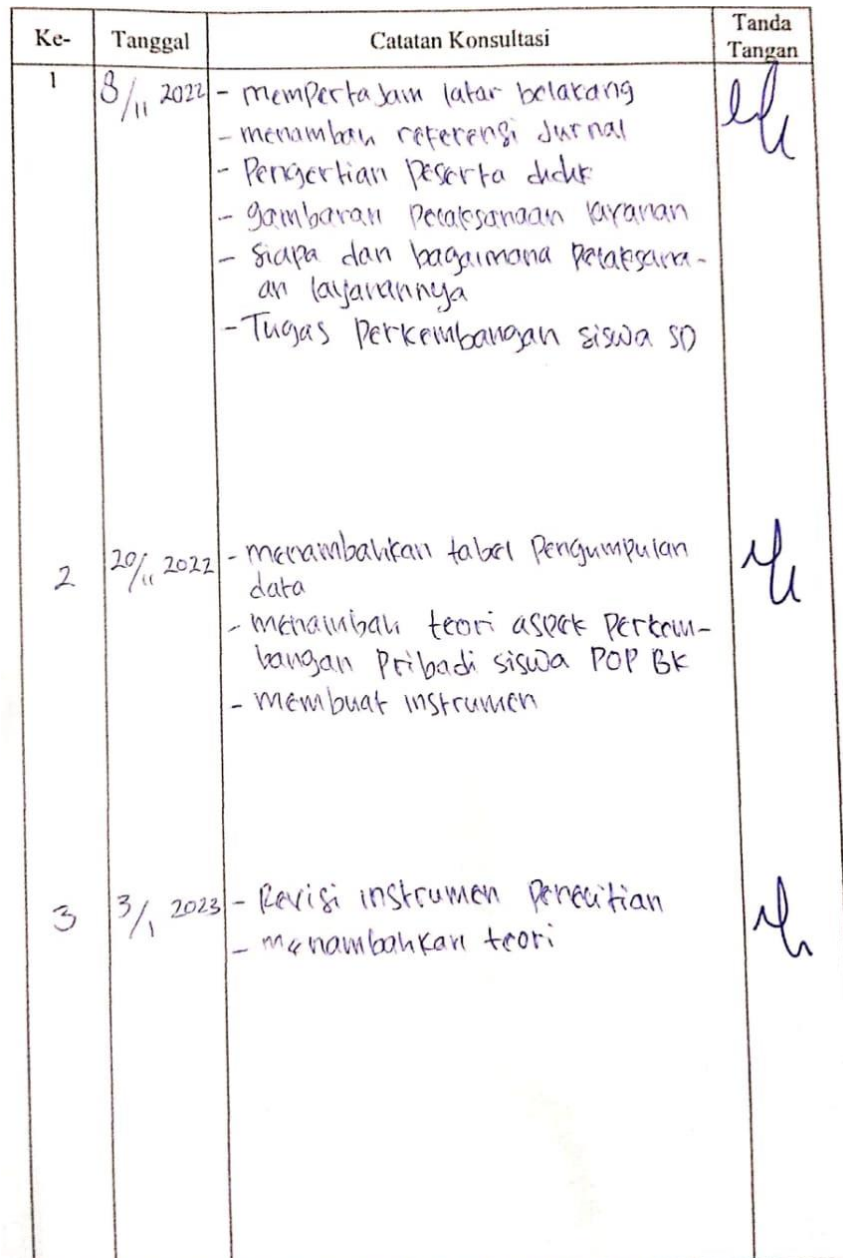 Ke- Tanggal Catatan Konsultasi Tanda Tangan
1 8/11 2022 - mempertajam latar belakang
- menambah referensi Jurnal
- Pengertian Peserta didik
- gambaran Pelaksanaan layanan
- Siapa dan bagaimana Pelaksana-
an layanannya
- Tugas Perkembangan siswa SD
2 20/11 2022 - menambahkan tabel Pengumpulan
data
- menambah teori aspek Perkem-
bangan Pribadi siswa POP BK
- membuat instrumen
3 3/1 2023 - Revisi instrumen Penelitian
- menambahkan teori